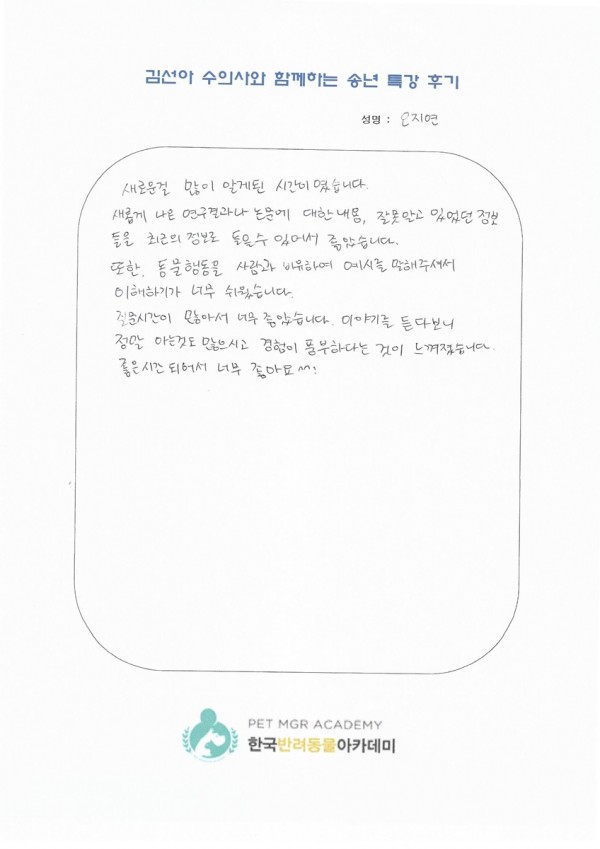 김선아 수의사와 함께하는 송년 특강 후기
성명 : 오지연
새로운걸 많이 알게된 시간이였습니다.
새롭게 나온 연구결과나 논문에 대한내용, 잘못알고 있었던 정보
들을 최근의 정보로 들을수 있어서 좋았습니다.
또한, 동물행동을 사람과 비유하여 예시를 말해주셔서
이해하기가 너무 쉬웠습니다.
질문시간이 많아서 너무 좋았습니다. 이야기를 듣다보니
정말 아는것도 많으시고 경험이 풍부하다는 것이 느껴졌습니다.
좋은시간 되어서 너무 좋아요^^!
PET MGR ACADEMY
한국반려동물아카데미